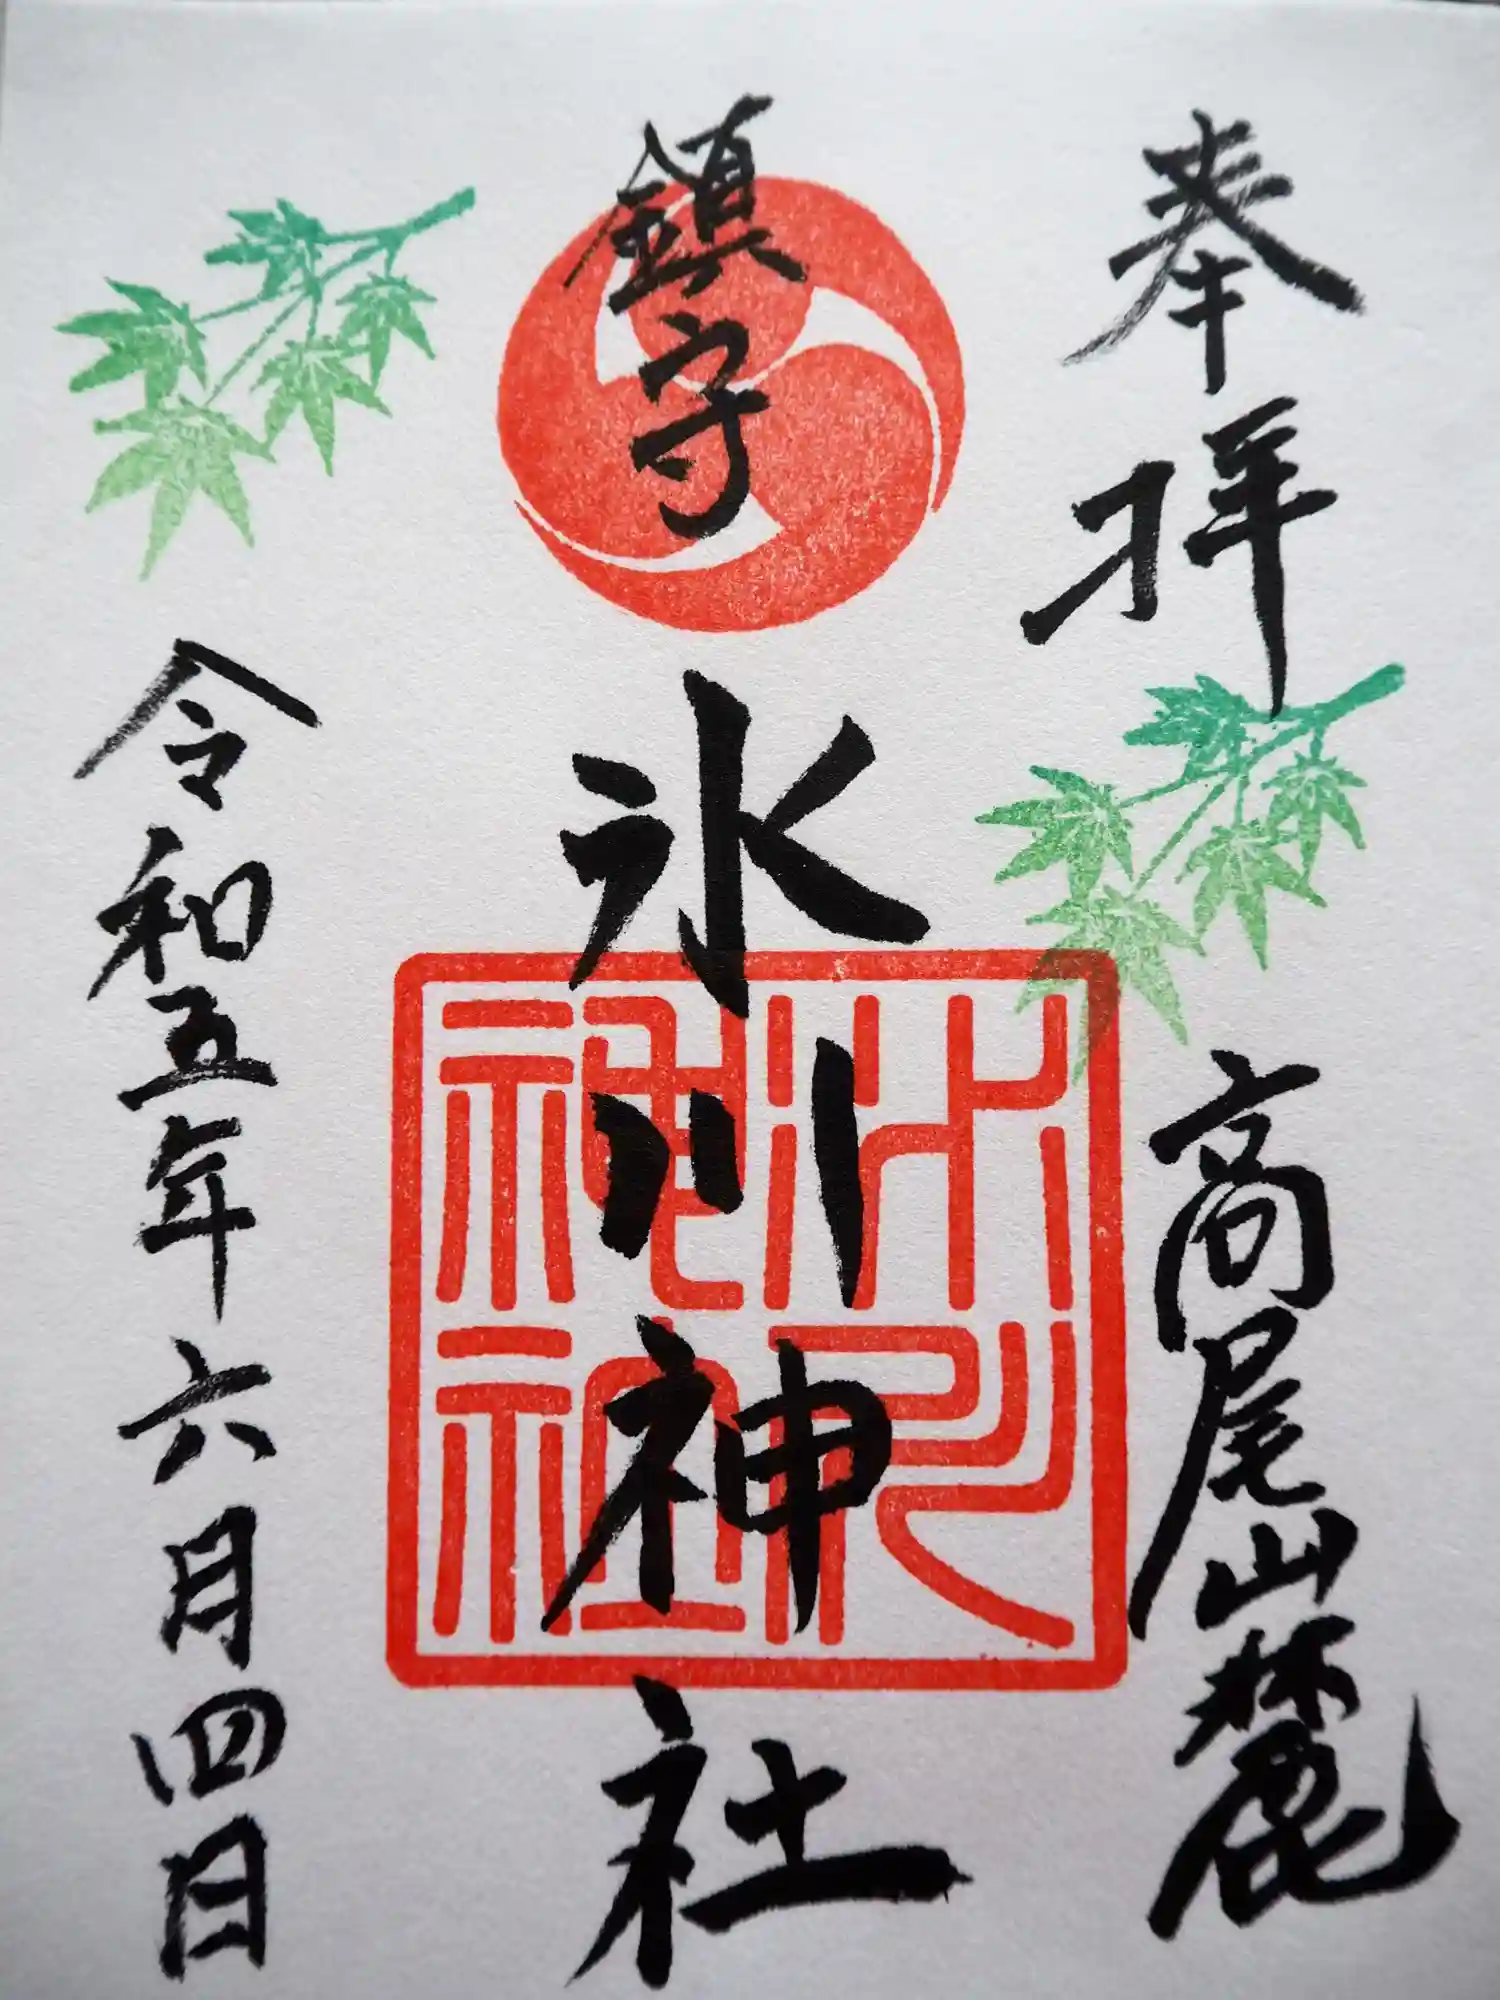 奉拝
高尾山麓
鎮守
氷川神社
氷川
神社
令和五年六月四日